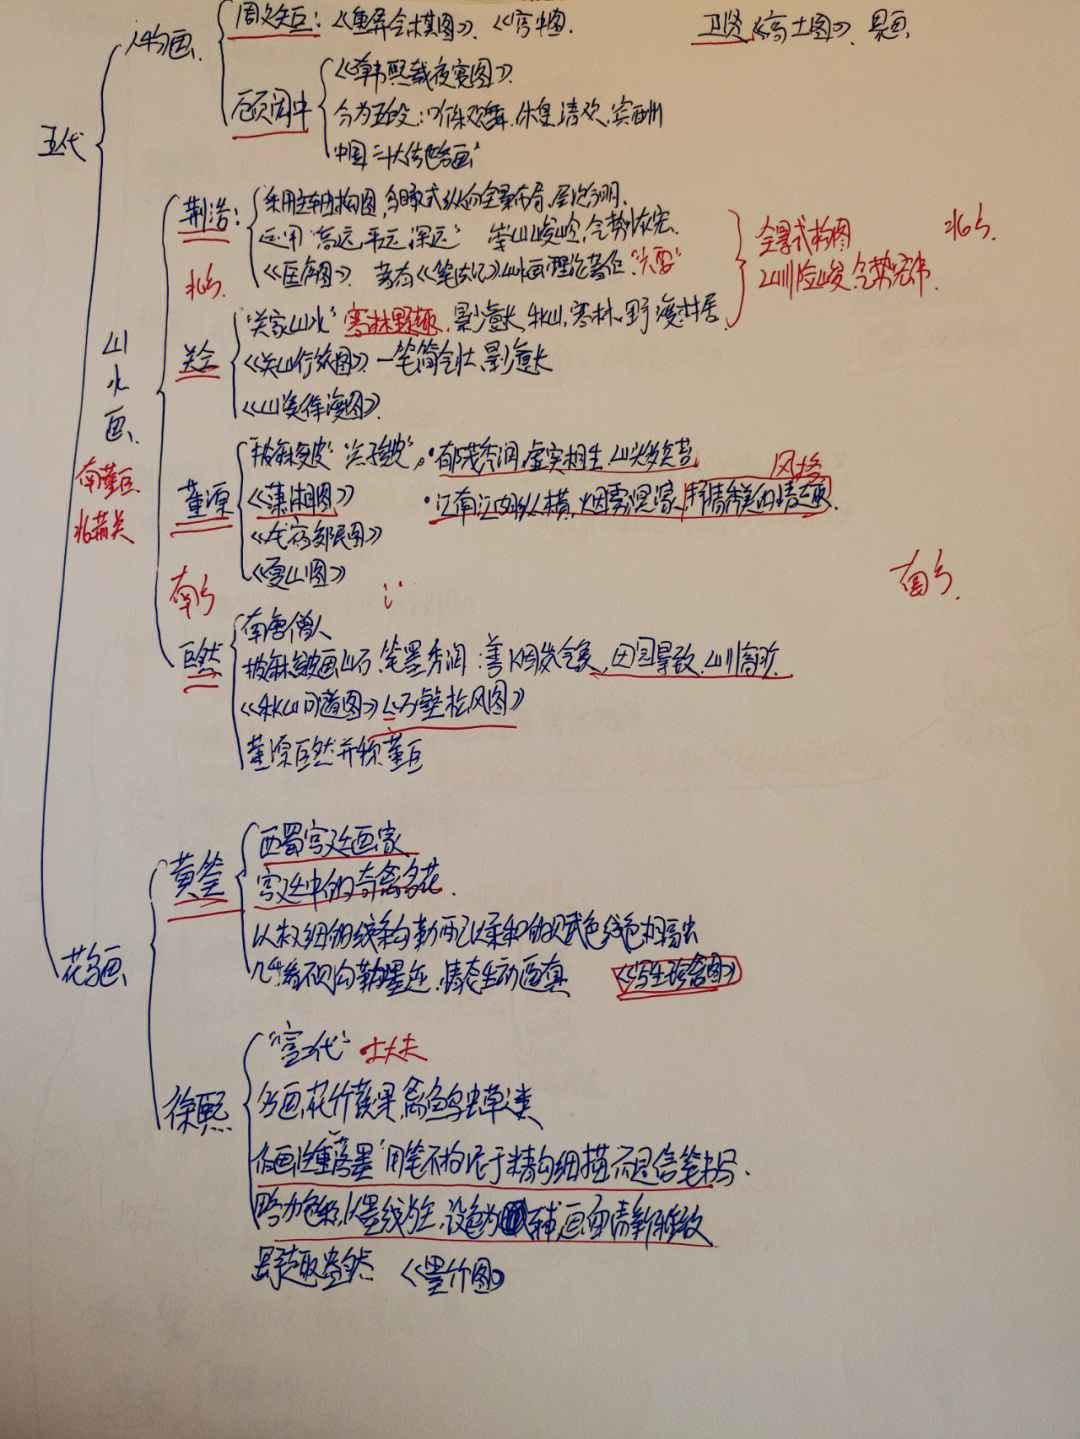 五代
人物画
周文矩：《重屏会棋图》、《宫中图》
卫贤《高士图》、界画
顾闳中
《韩熙载夜宴图》
分为五段：听乐、观舞、休息、清吹、宾酬
中国十大传世名画
山水画
南董巨
北荆关
荆浩：
北方
采用主轴构图，多段式纵向全景布局，层次分明
运用“高远、平远、深远” 崇山峻岭，气势恢宏
《匡庐图》 著有《笔法记》山水画理论著作“六要”
全景式构图
山川险峻，气势宏伟
北方
关仝
“关家山水”寒林野趣，景少意长 秋山，寒林，野渡，村居
《关山行旅图》一笔简气壮，景少意长
《山溪待渡图》
董源
南方
“披麻皴”“点子皴”
·郁茂秀润，虚实相生，山头多矾头
风格
《潇湘图》
·江南江河纵横，烟雾溟濛，
《龙宿郊民图》
《夏山图》
南方
巨然
南唐僧人
披麻皴画山石，笔墨秀润：善
《秋山问道图》《万壑松风图》
董源巨然并称董巨
花鸟画
黄筌
西蜀宫廷画家
宫廷中的奇禽名花
以极细的线条勾勒，配以柔和的赋色，线色相融
几乎看不见勾勒墨迹，情态生动逼真 《写生珍禽图》
徐熙
士大夫
多画花竹蔬果，禽鱼鸟虫草之类
作画注重“落墨”用笔不拘泥于精勾细描而是信笔书写
略加色彩，以墨线为主，设色为辅，画面清新雅致
野趣盎然 《墨竹图》